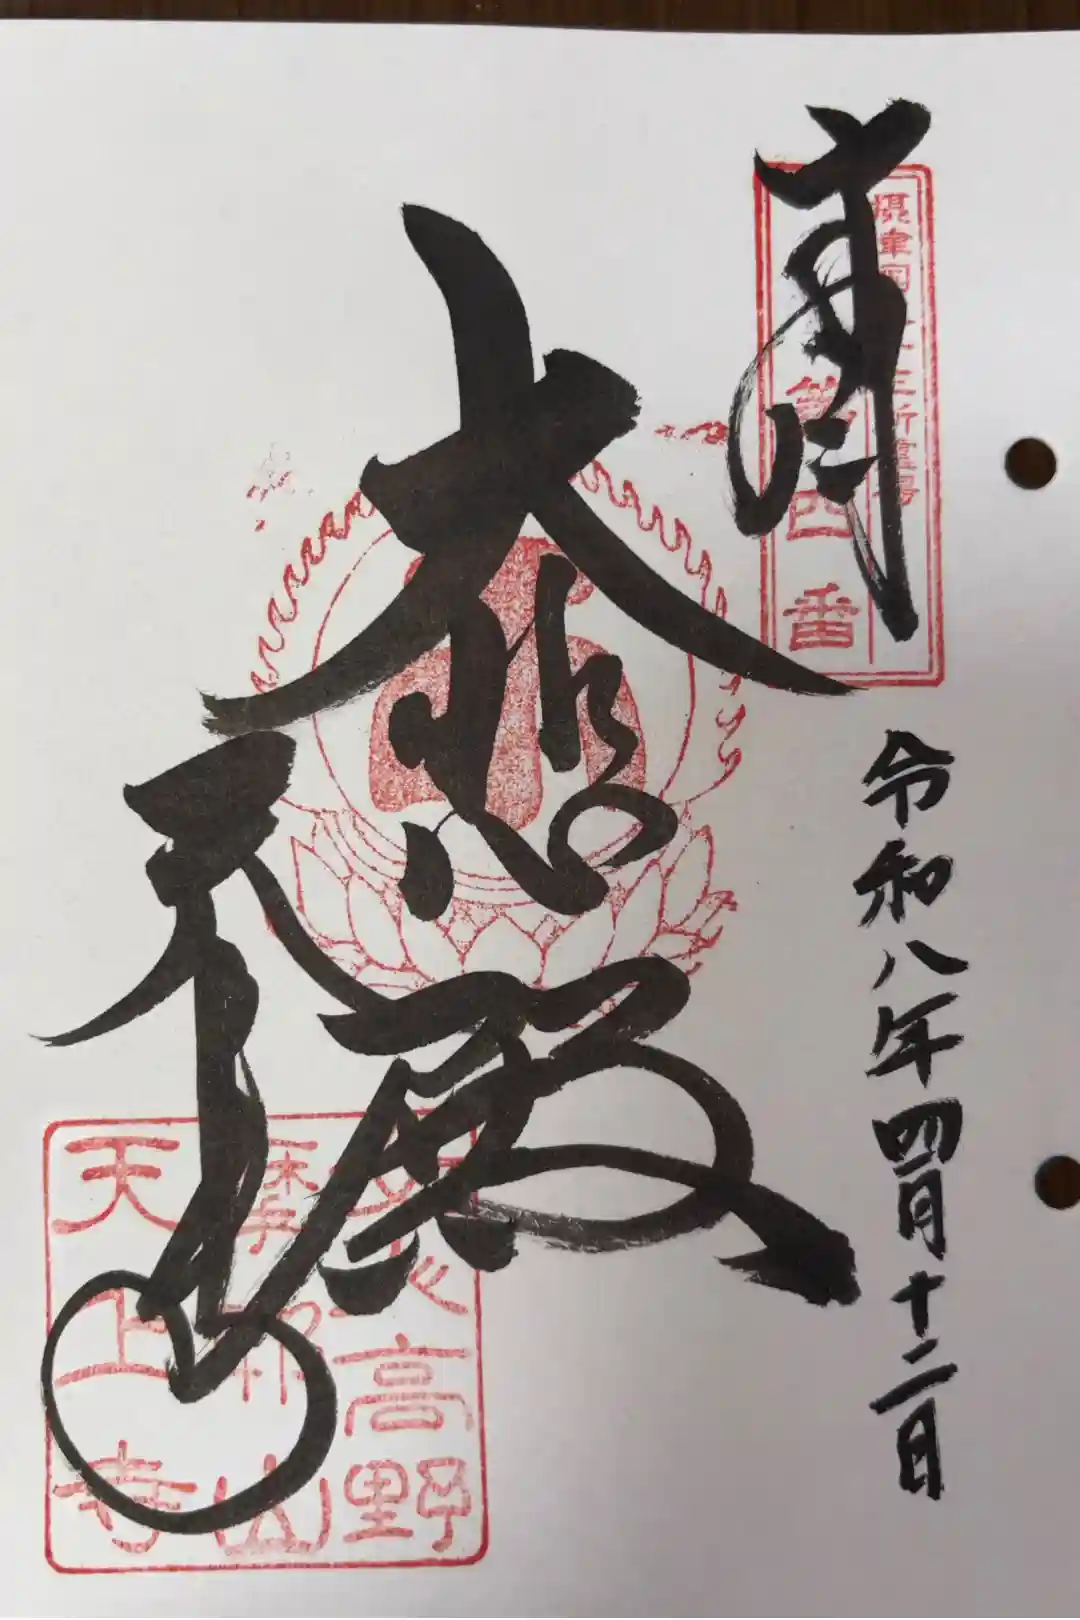 奉拝
摂津国三十三所霊場
第四番
令和八年四月十二日
大悲殿
天上寺
高野
摩耶山
天上寺